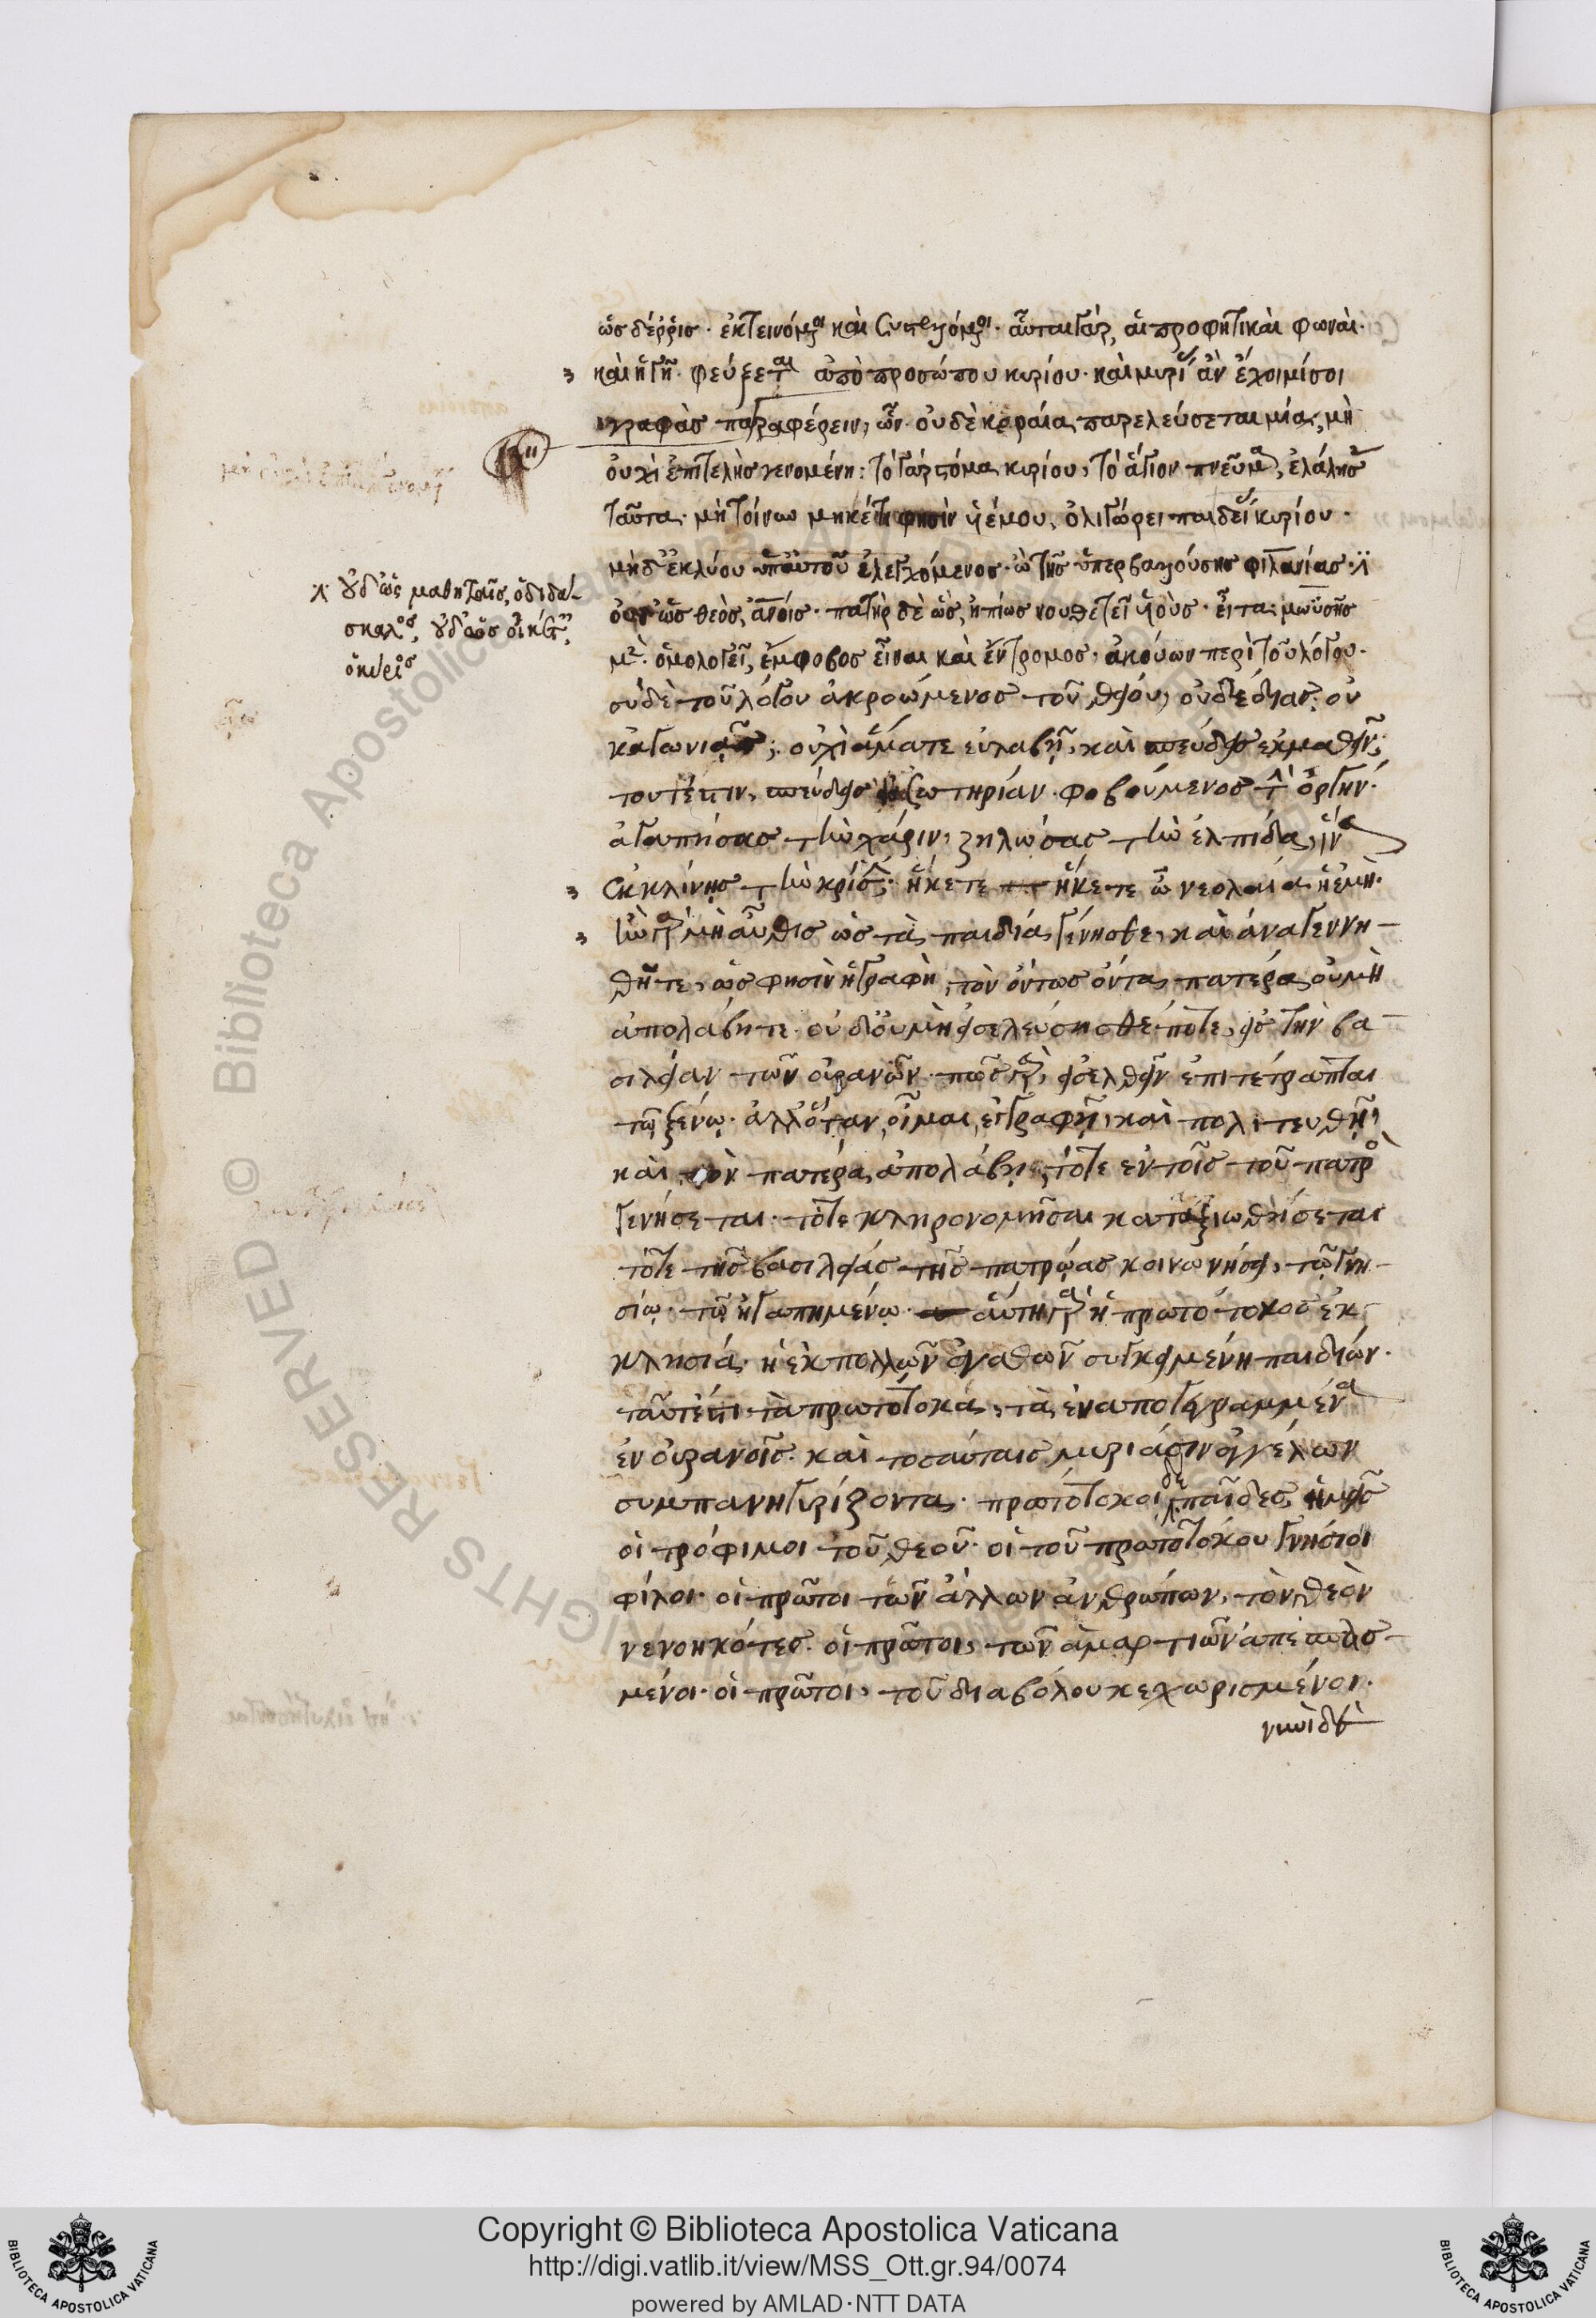 ὡς δέρρις· ἐκτεινόμεναι καὶ συστελλόμεναι. αὗται γὰρ, αἱ προφητικαὶ φωναὶ.
καὶ ἡ γῆ φεύξεται ἀπὸ προσώπου κυρίου· καὶ μυρίας ἂν ἔχοιμί σοι
γραφὰς παραφέρειν, ὧν οὐδὲ κεραία παρελεύσεται μία, μὴ
οὐχὶ ἐπιτελὴς γενομένη: τὸ γὰρ στόμα κυρίου, τὸ ἅγιον πνεῦμα, ἐλάλησε
ταῦτα· μὴ τοίνυν μηκέτι φησὶν υἱέ μου, ὀλιγώρει παιδείας κυρίου·
μὴδ' ἐκλύου ὑπ' αὐτοῦ ἐλεγχόμενος· ὢ τῆς ὑπερβαλλούσης φιλανίας·
οὐδ' ὡς μαθηταῖς, ὁ διδά-
σκαλος, οὐδ' ὡς οἰκέταις,
ὁ κύριος
οὐδ' ὡς θεὸς, ἀνοις· πατὴρ δὲ ὡς, ἠπίως νουθετεῖ υἱοὺς· εἶτα μωϋσῆς
μὲν ὁμολογεῖ, ἔμφοβος εἶναι καὶ ἔντρομος, ἀκούων περὶ τοῦ λόγου·
σὺ δὲ τοῦ λόγου ἀκροώμενος τοῦ θείου, οὐ δέδιας; οὐκ
ἀγωνιᾷς; οὐχὶ ἅμα τε εὐλαβῇ, καὶ σπεύδεις ἐκμαθεῖν;
τουτέστιν, σπεύδεις εἰς σωτηρίαν· φοβούμενος τὴν ὀργήν·
ἀγαπήσας τὴν χάριν, ζηλώσας τὴν ἐλπίδα, ἵνα
ἐκκλίνῃς τὴν κρίσιν· ἥκετε ἥκετε ὦ νεολαία ἡ ἐμή·
ἢν γὰρ μὴ αὖθις ὡς τὰ παιδία γένησθε, καὶ ἀναγεννη-
θῆτε, ὥς φησὶν ἡ γραφὴ, τὸν ὄντως ὄντα πατέρα οὐ μὴ
ἀπολάβητε οὐδ' οὐ μὴ εἰσελεύσησθέ ποτε, εἰς τὴν βα-
σιλείαν τῶν οὐρανῶν· πῶς γὰρ, εἰσελθεῖν ἐπιτέτραπται
τῷ ξένῳ· ἀλλ' ὅταν, οἶμαι, ἐγγραφῇ, καὶ πολιτευθῇ,
καὶ τὸν πατέρα ἀπολάβῃ, τότε ἐν τοῖς τοῦ πατρὸς
γενήσεται· τότε κληρονομῆσαι καταξιωθήσεται
τότε τῆς βασιλείας τῆς πατρῴας κοινωνήσει, τῷ γνη-
σίῳ· τῷ ἠγαπημένῳ· αὕτη γὰρ ἡ πρωτότοκος ἐκ-
κλησία· ἡ ἐκ πολλῶν ἀγαθῶν συγκειμένη παιδίων·
ταῦτ' ἔστι τὰ πρωτότοκα, τὰ ἐναπογεγραμμένα
ἐν οὐρανοῖς· καὶ τοσαύταις μυριάσιν ἀγγέλων
συμπανηγυρίζοντα· πρωτότοκοι δὲ παῖδες ἡμεῖς
οἱ τρόφιμοι τοῦ θεοῦ· οἱ τοῦ πρωτοτόκου γνήσιοι
φίλοι· οἱ πρῶτοι τῶν ἄλλων ἀνθρώπων, τὸν θεὸν
νενοηκότες· οἱ πρῶτοι, τῶν ἁμαρτιῶν ἀπεσπασ-
μένοι· οἱ πρῶτοι, τοῦ διαβόλου κεχωρισμένοι.
νυνὶ δὲ
Copyright © Biblioteca Apostolica Vaticana
http://digi.vatlib.it/view/MSS_Ott.gr.94/0074
powered by AMLAD·NTT DATA